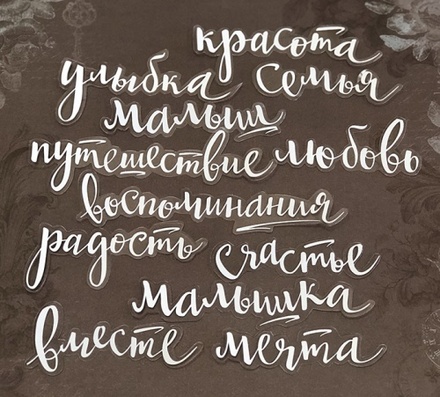 красота
улыбка семья
малыш
путешествие любовь
воспоминания
радость счастье
малышка
вместе мечта